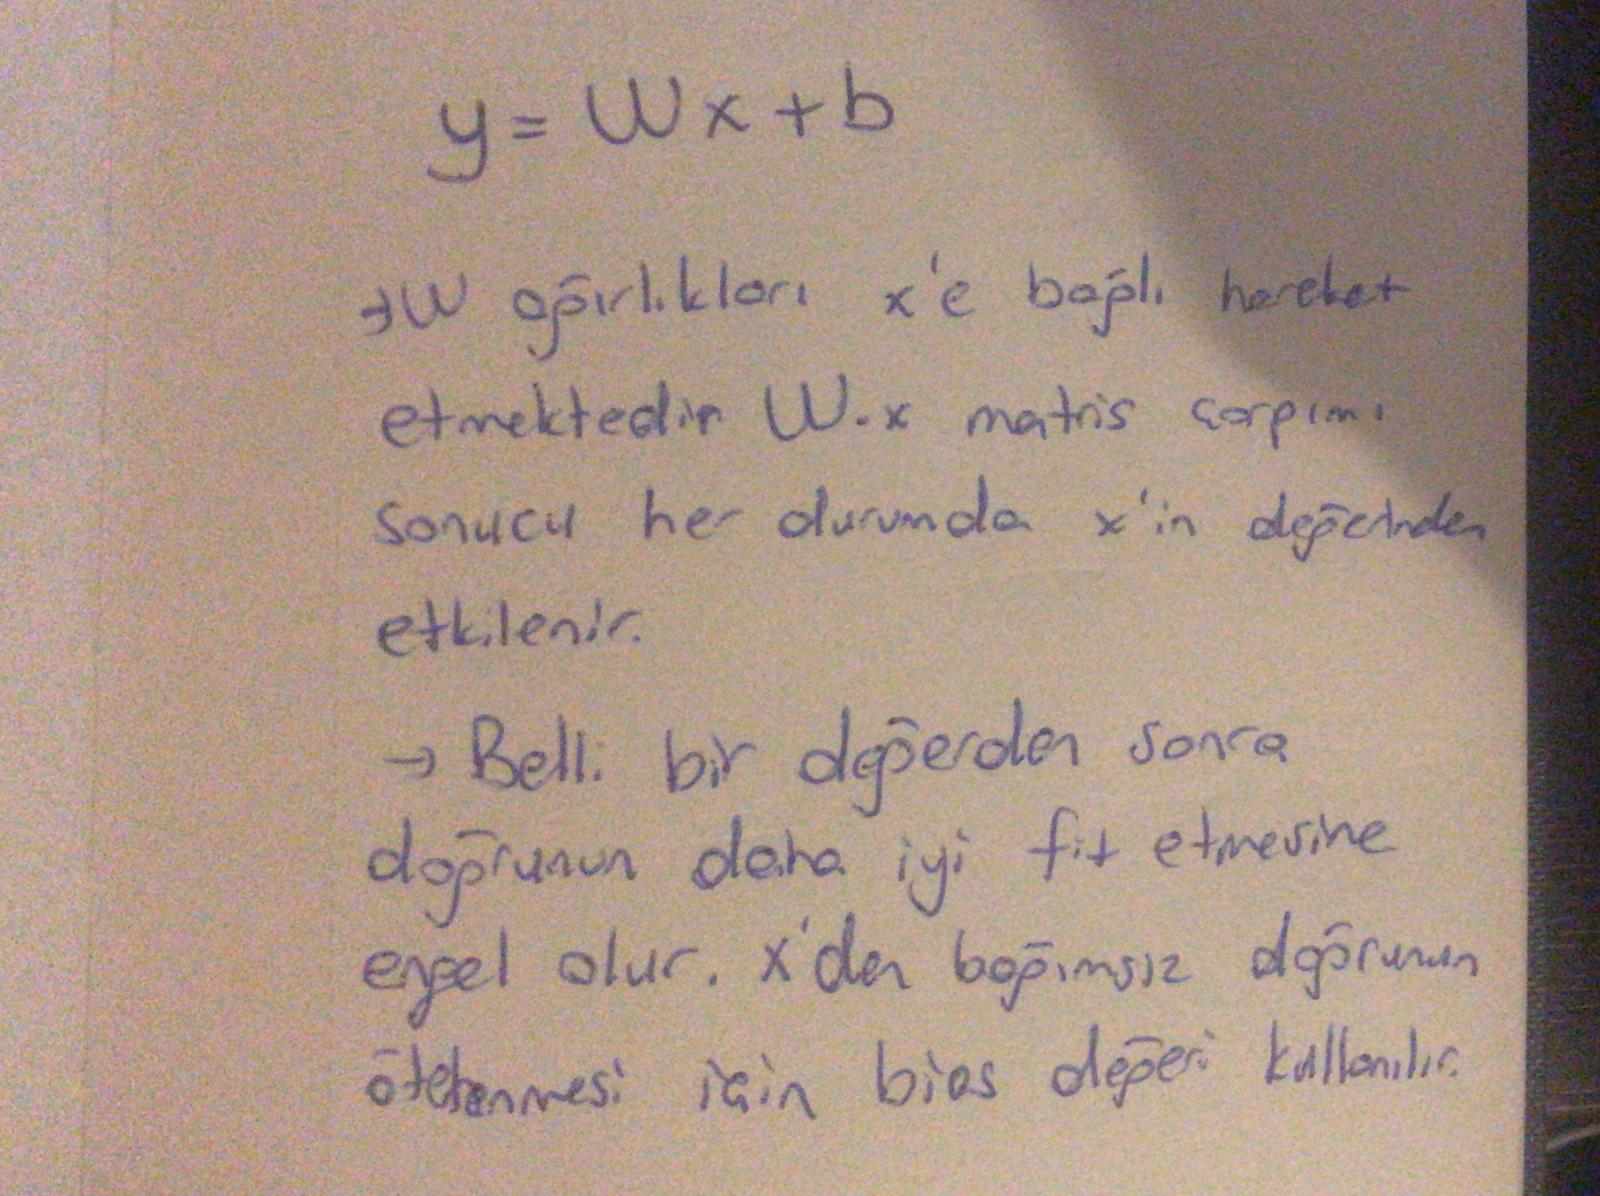 y = Wx + b
→ W ağırlıkları x'e bağlı hareket
etmektedir W.x matris çarpımı
sonucu her durumda x'in değerinden
etkilenir.
→ Belli bir değerden sonra
doğrunun daha iyi fit etmesine
engel olur. x'den bağımsız doğrunun
ötelenmesi için bias değeri kullanılır.